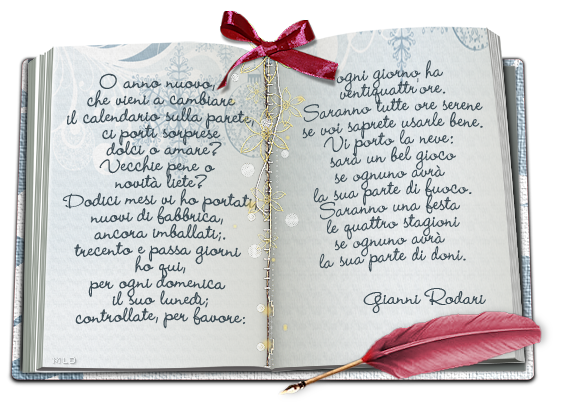 O anno nuovo,
che vieni a cambiare
il calendario sulla parete,
ci porti sorprese
dolci o amare?
Vecchie pene o
novità liete?
Dodici mesi vi ho portati,
nuovi di fabbrica,
ancora imballati;.
trecento e passa giorni
ho qui,
per ogni domenica
il suo lunedì;
controllate, per favore:
ogni giorno ha
ventiquattr'ore.
Saranno tutte ore serene
se voi saprete usarle bene.
Vi porto la neve:
sarà un bel gioco
se ognuno avrà
la sua parte di fuoco.
Saranno una festa
le quattro stagioni
se ognuno avrà
la sua parte di doni.
Gianni Rodari